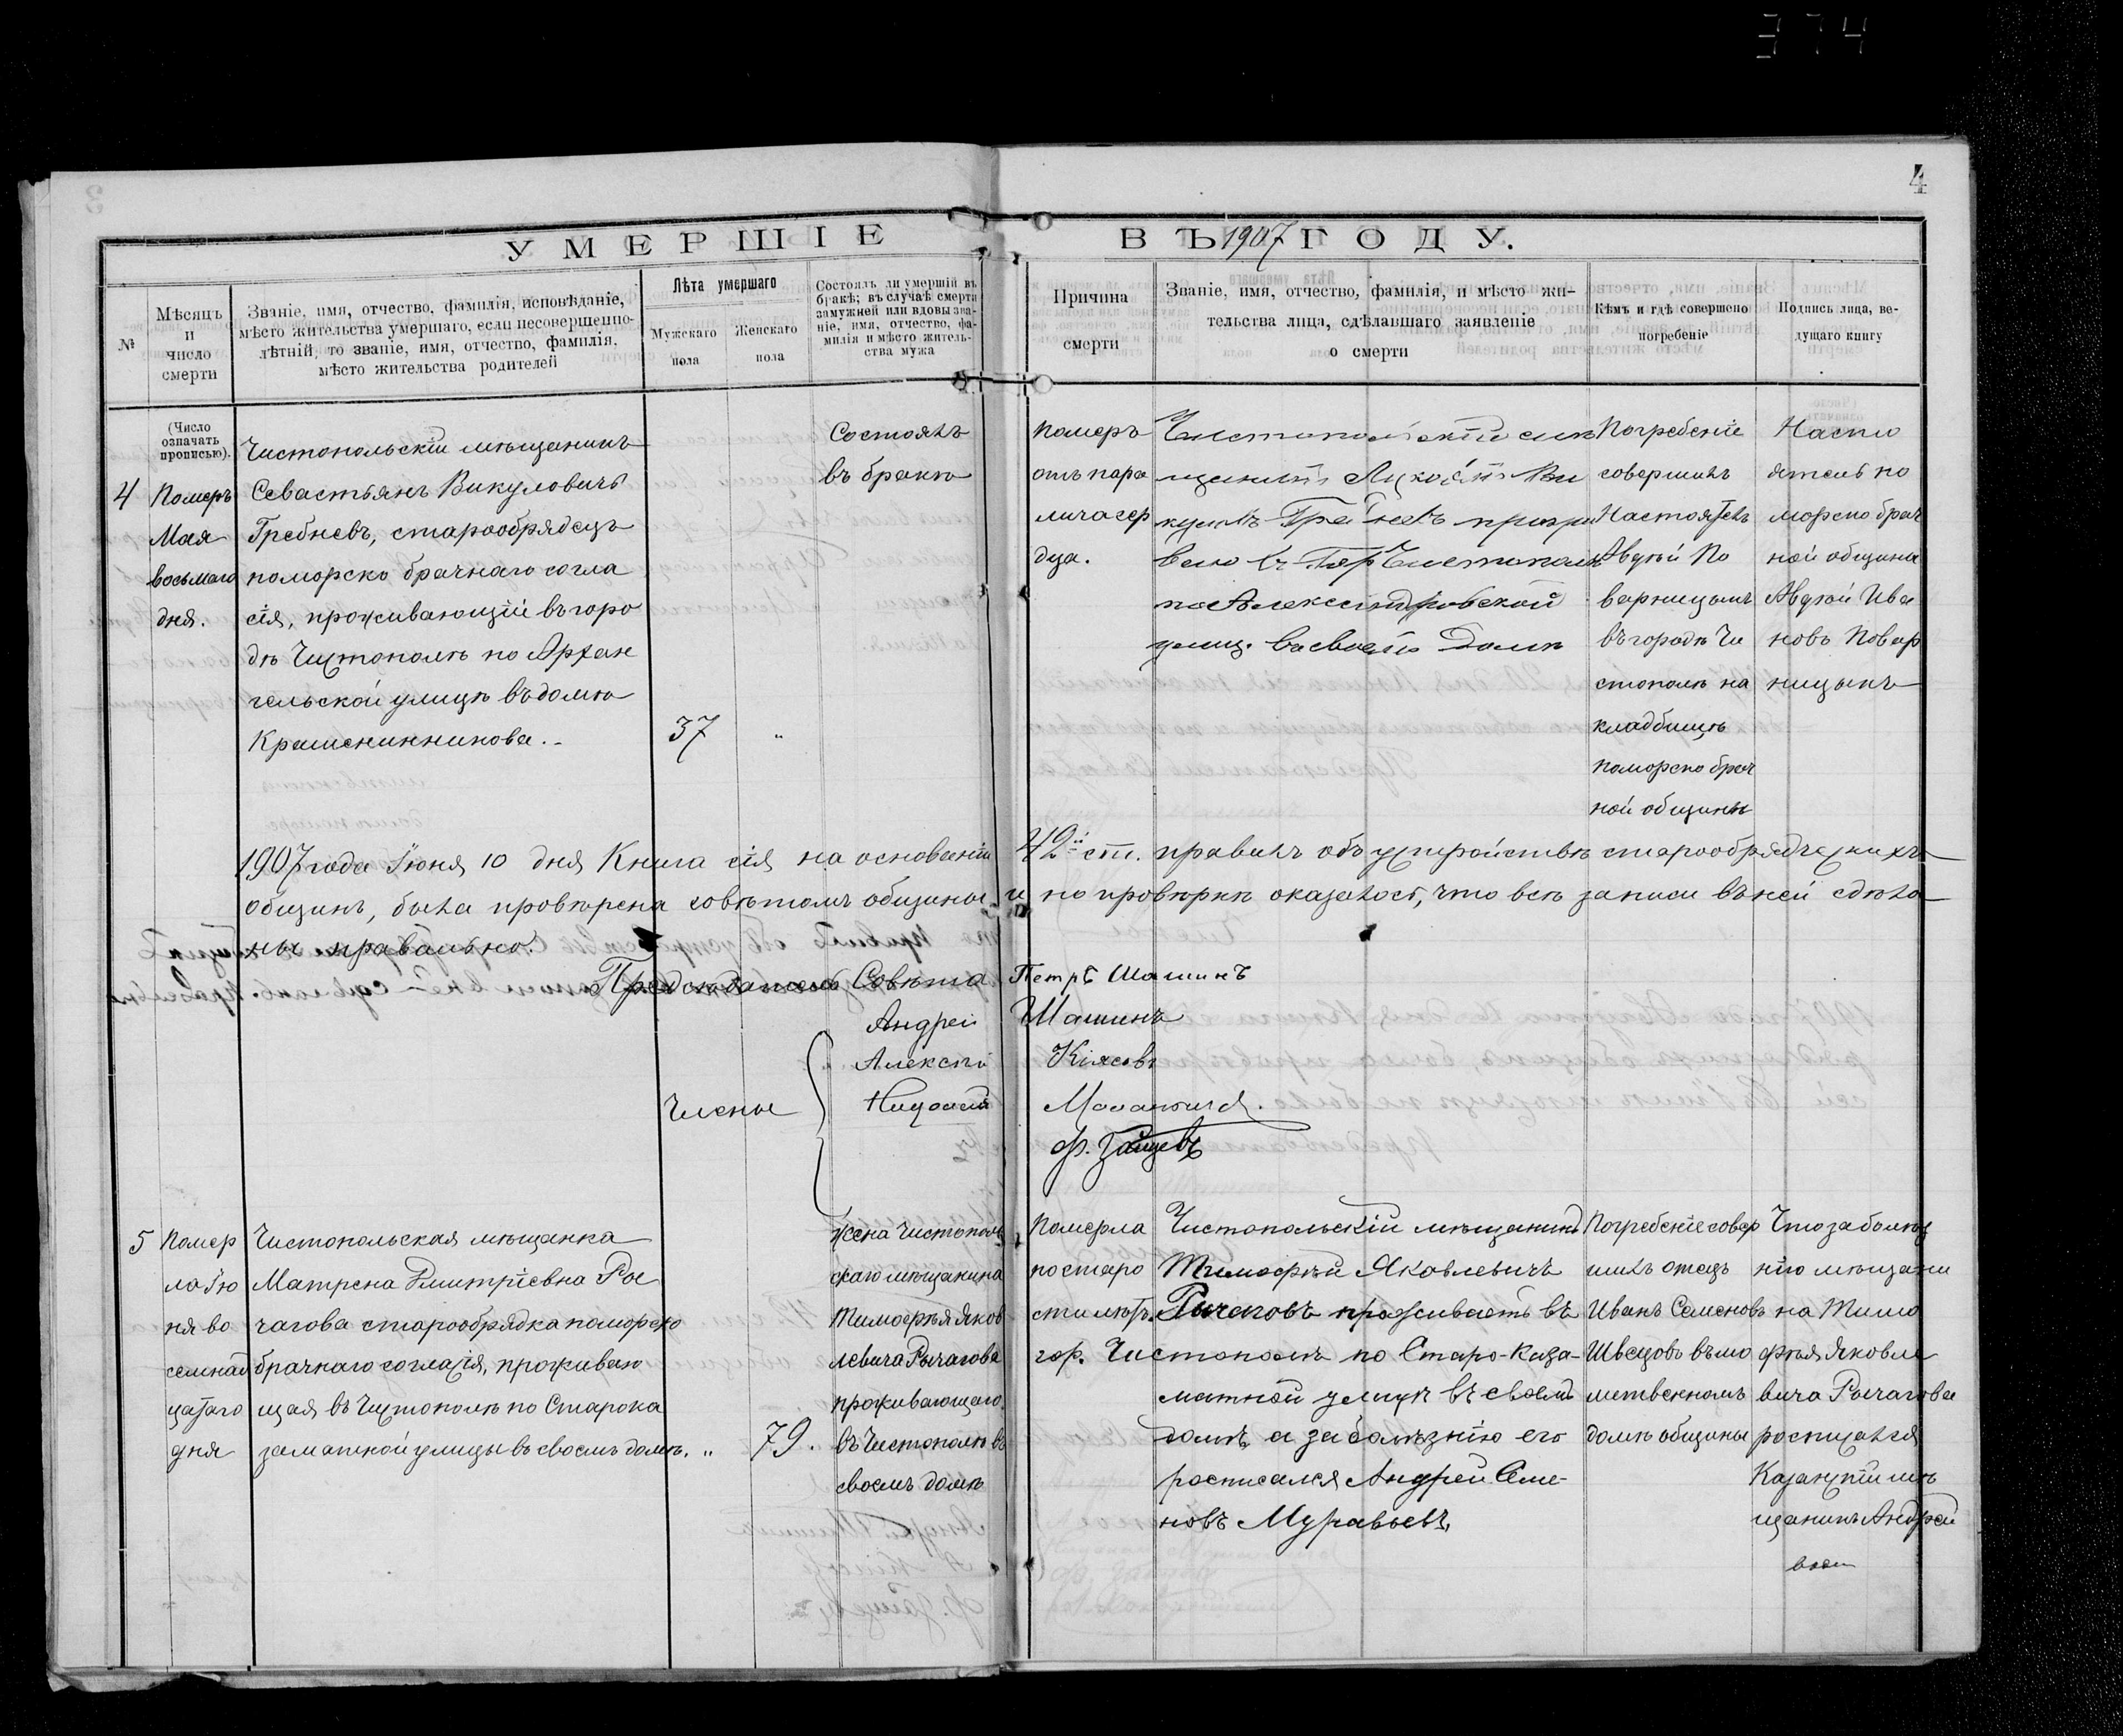 374
4
УМЕРШІЕ
ВЪ 1907 ГОДУ.
№
Мѣсяцъ
и
число
смерти
Званіе, имя, отчество, фамилія, исповѣданіе,
мѣсто жительства умершаго, если несовершенно-
лѣтній, то званіе, имя, отчество, фамилія,
мѣсто жительства родителей
Лѣта умершаго
Мужскаго
пола
Женскаго
пола
Состоялъ ли умершій въ
бракѣ; въ случаѣ смерти
замужней или вдовы зва-
ніе, имя, отчество, фа-
милія и мѣсто житель-
ства мужа
Причина
смерти
Званіе, имя, отчество, фамилія, и мѣсто жи-
тельства лица, сдѣлавшаго заявленіе
о смерти
Кѣмъ и гдѣ совершено
погребеніе
Подпись лица, ве-
дущаго книгу
(Число
означать
прописью).
4
Померъ
Мая
восьмаго
дня.
Чистопольскій мѣщанинъ
Севастьянъ Викуловичъ
Гребневъ, старообрядецъ
поморско брачнаго согла
сія, проживающій въ горо
дѣ Чистополѣ по Архан
гельской улицѣ въ домѣ
Крашенинникова.
37
"
Состоялъ
въ бракѣ
Померъ
отъ пара
личасер
дца.
Чистопольскій мѣ
щанинъ Ви
куловъ Гребневъ
въ Гор Чистополѣ
по Александровской
улиц. во своемъ Домѣ
Погребеніе
совершилъ
Настоятель
Авдѣй По
варницынъ
въ городѣ Чи
стополѣ на
кладбищѣ
поморско брач
ной общины
Насто
ятель по
морско брач
ной общины
Авдѣй Ива
новъ Повар
ницынъ
1907 года Іюня 10 дня Книга сія на основаніи 42й ст. правилъ объ устройствѣ старообрядческихъ
общинъ, была провѣрена совѣтомъ общины и по провѣркѣ оказалось, что всѣ записи въ ней сдѣла
ны правильно.
Предсѣдатель Совѣта Петръ Шашинъ
Андрей Шашинъ
Алексѣй Кіясовъ
Члены
Николай
Ф. Зайцевъ
5
Помер
ла Ію
ня во
семнад
цатаго
дня
Чистопольская мѣщанка
Матрена Дмитріевна Ры
чагова старообрядка поморско
брачнаго согласія, проживаю
щая въ Чистополѣ по Старока
зематной улицы въ своемъ домѣ.
"
79.
жена Чистополь
скаго мѣщанина
Тимофѣя Яков
левича Рычагова
проживающаго
въ Чистополѣ въ
своемъ домѣ
Померла
по старо
сти лѣтъ.
Чистопольскій мѣщанинъ
Тимофѣй Яковлевичъ
Рычаговъ проживаетъ въ
гор. Чистополѣ по Старо-Каза-
матной улицѣ въ своемъ
домѣ, а за болѣзнію его
росписался Андрей Семе-
новъ Муравьевъ.
Погребеніе совер
шилъ отецъ
Иванъ Семеновъ
Швецовъ въ мо
литвенномъ
домѣ общины
Что за болѣз
нію мѣщани
на Тимо
фѣя Яковле
вича Рычагова
росписался
Казанскій мѣ
щанинъ Андрей